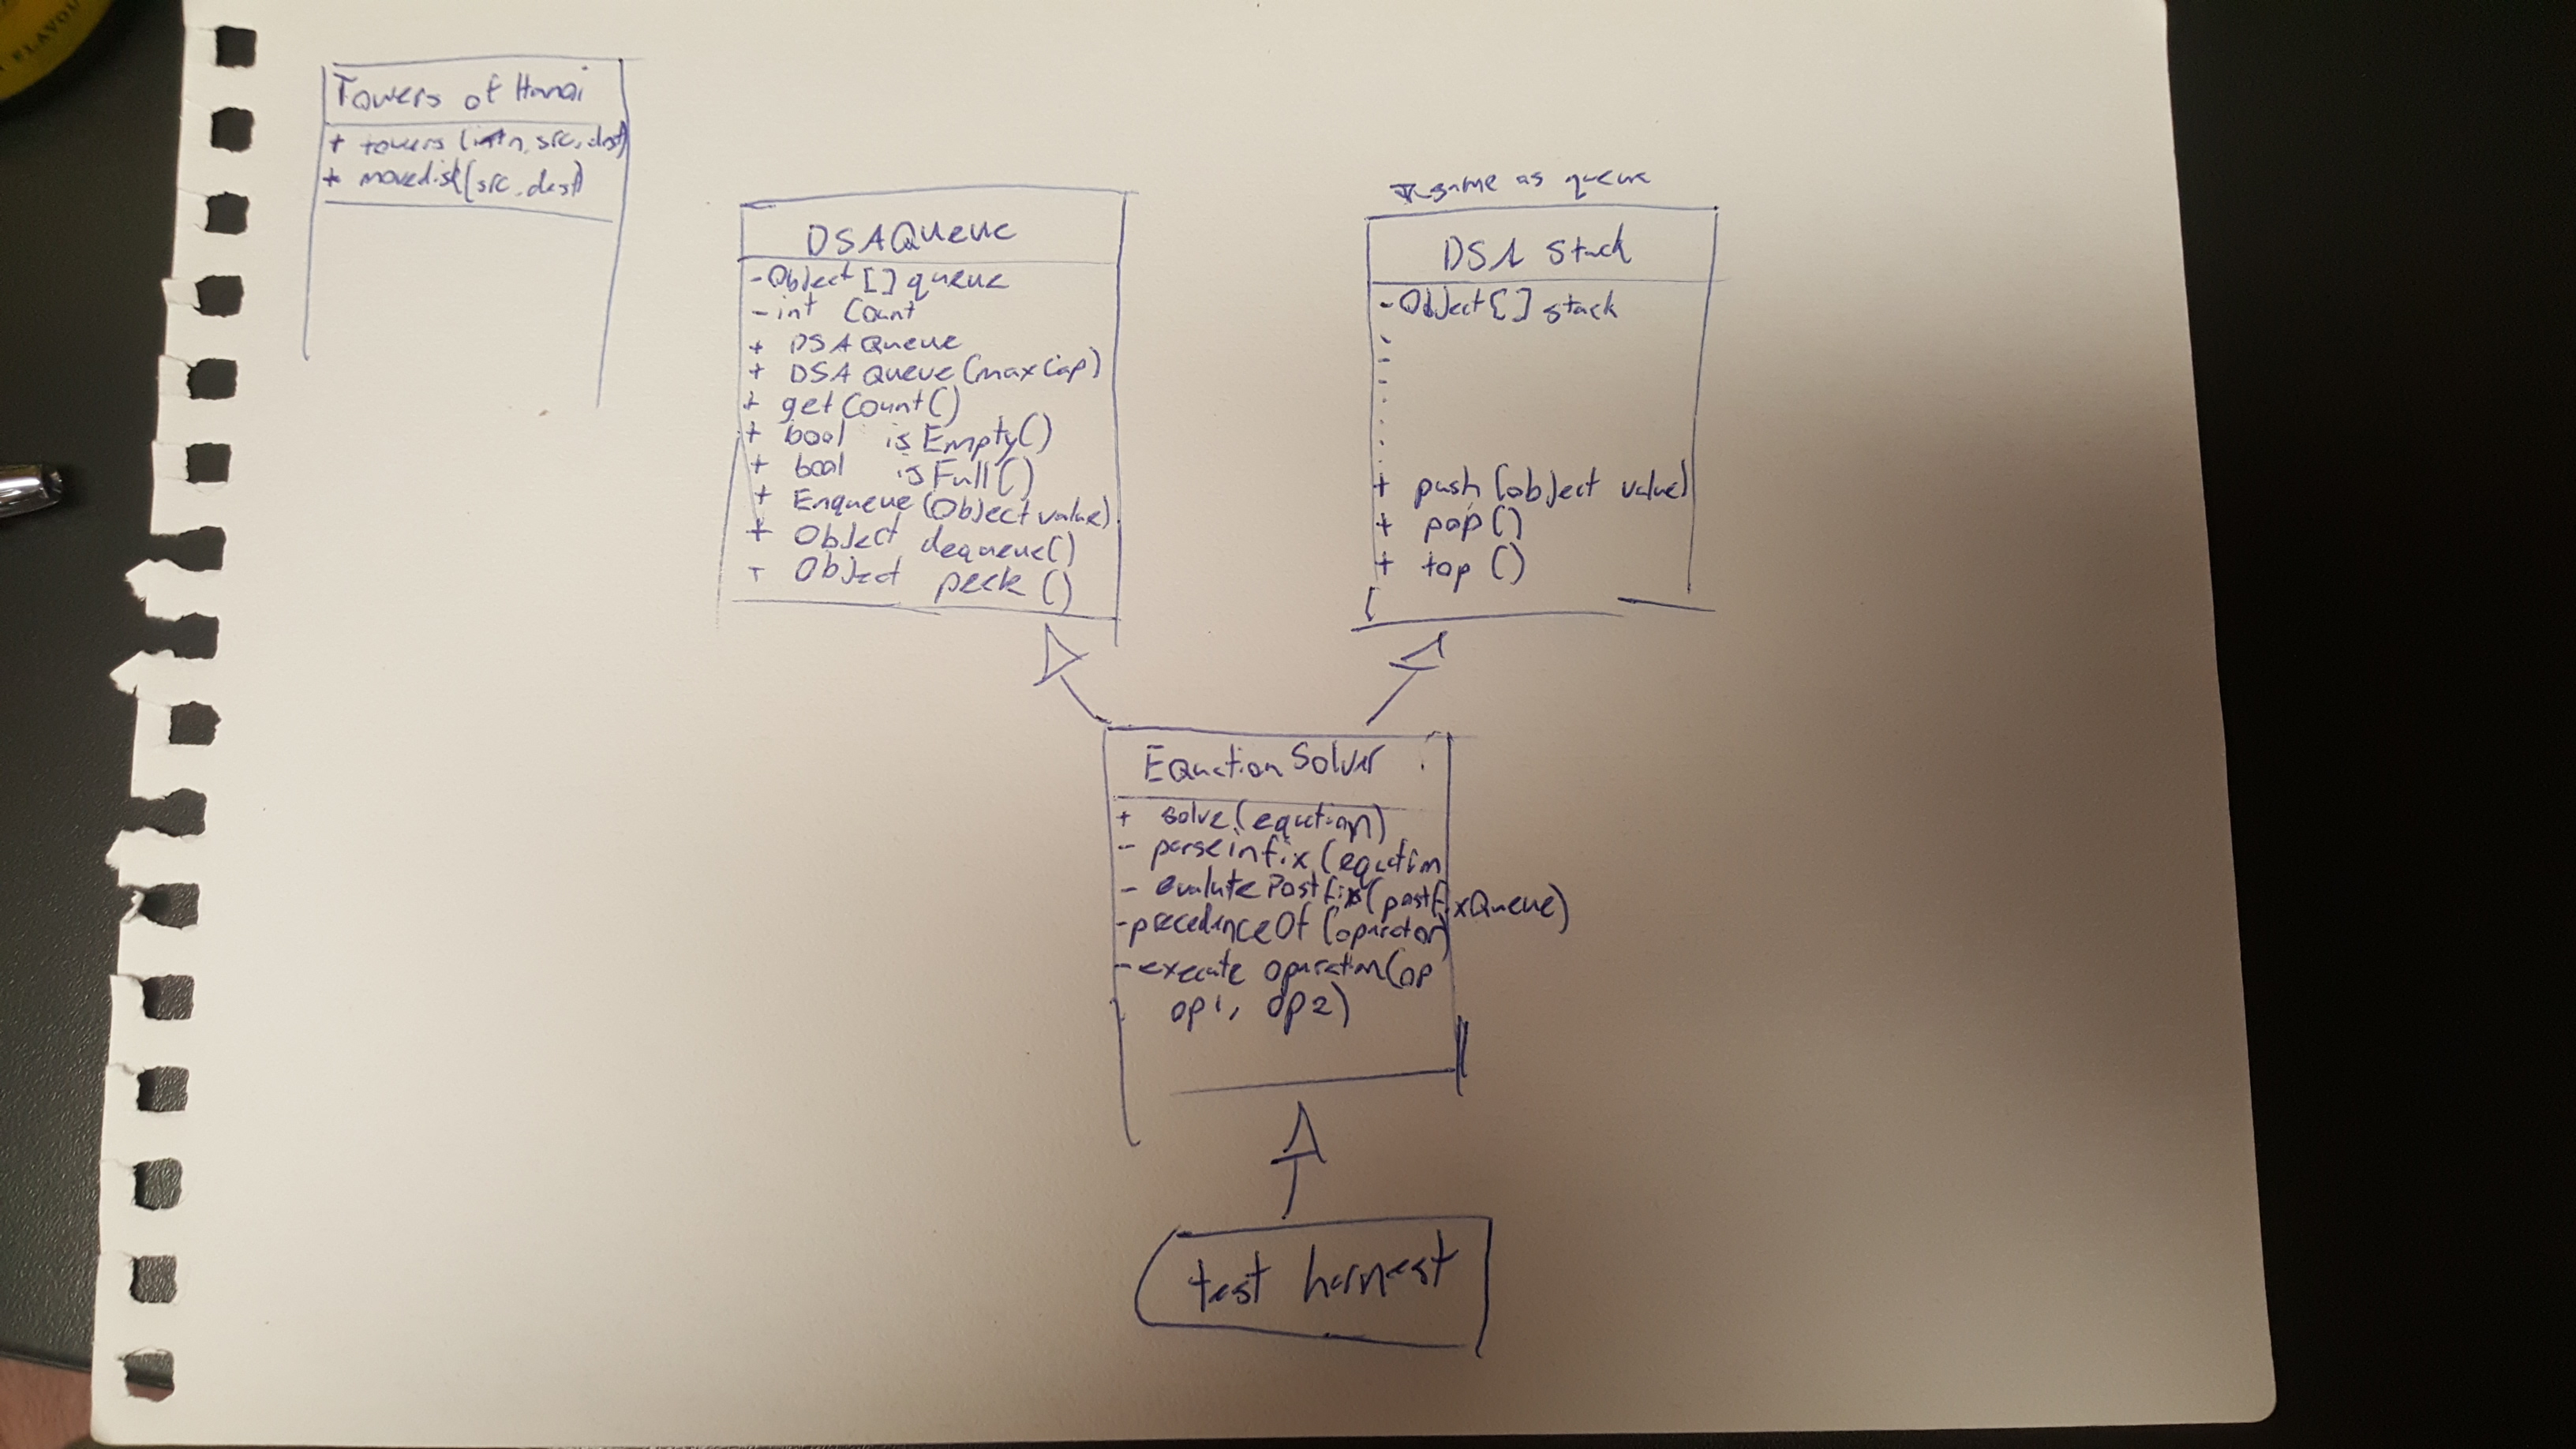 Towers of Hanoi
+ towers (int n, src, dest)
+ movedisk(src, dest)
DSAQueue
- Object [] queue
- int count
+ DSAQueue
+ DSAQueue (maxCap)
+ getCount()
+ bool isEmpty()
+ bool isFull()
+ Enqueue (Object value)
+ Object dequeue()
+ Object peek ()
same as queue
DSA Stack
- Object [] stack
+ push (object value)
+ pop ()
+ top ()
Equation Solver
+ solve (eqution)
- parse infix (eqution
- evalute Postfix (postfixQueue)
- precedence Of (operator)
- execute operation (op
op1, op2)
test harnest
FLAVOU